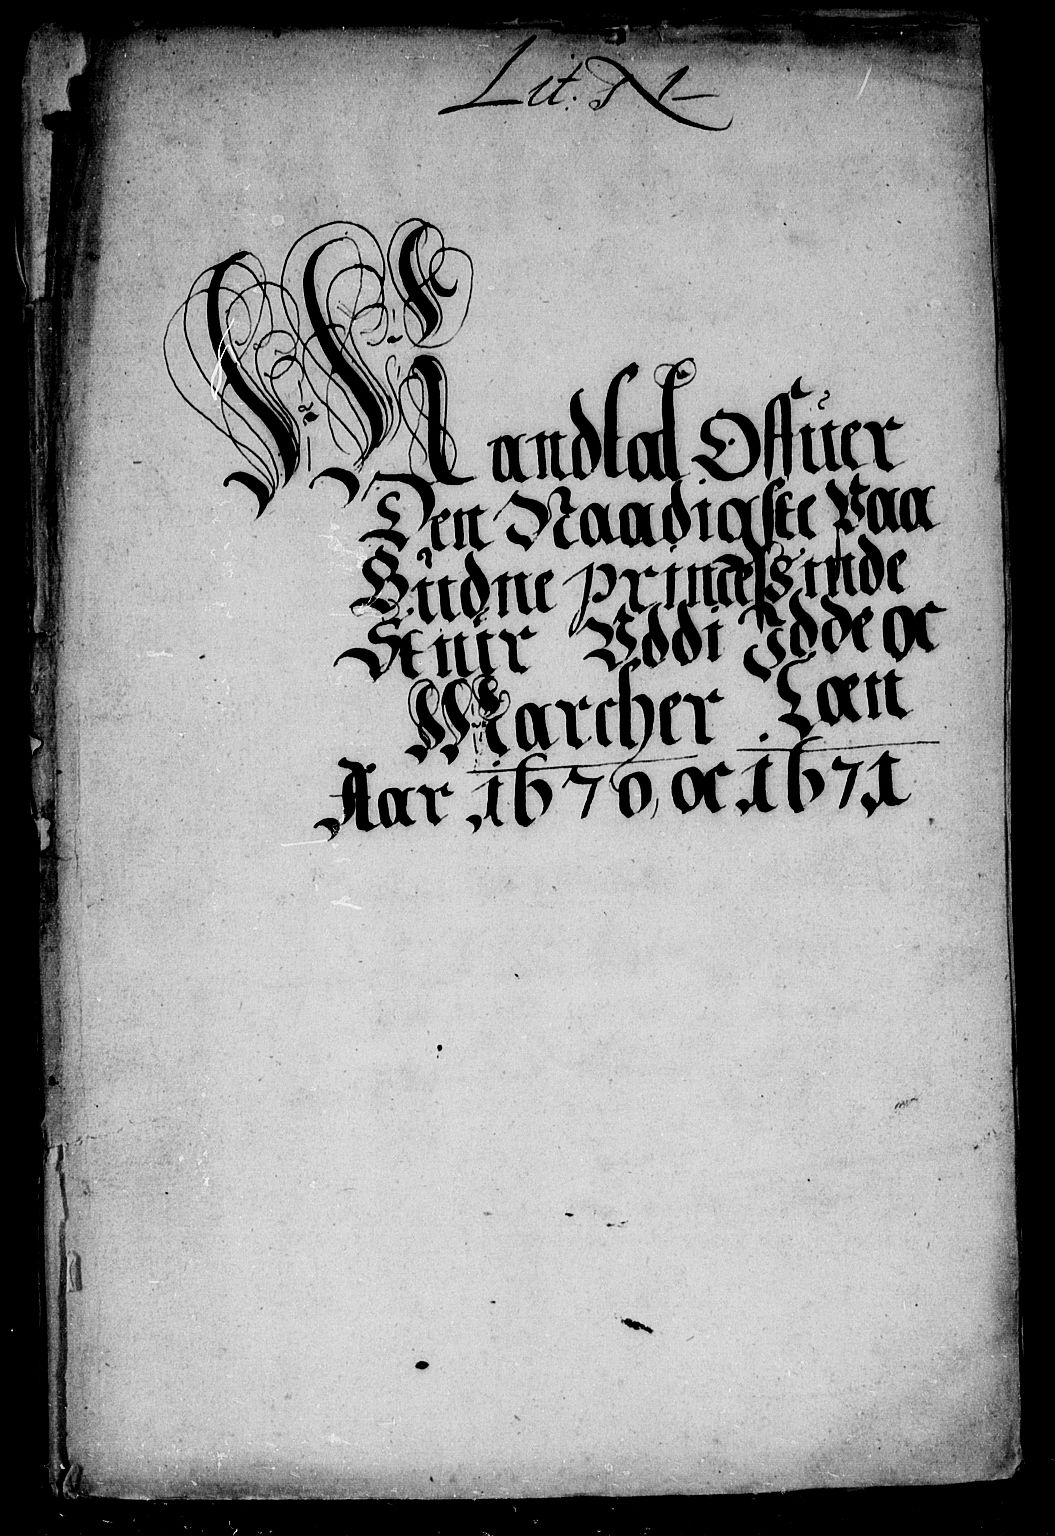 Lit. N 1
Mandtal Offuer
Den Naadigste Paa
Büdne princessinde
Stuir Vddi Idde oc
Marcher Læn
Aar 1670 oc 1671